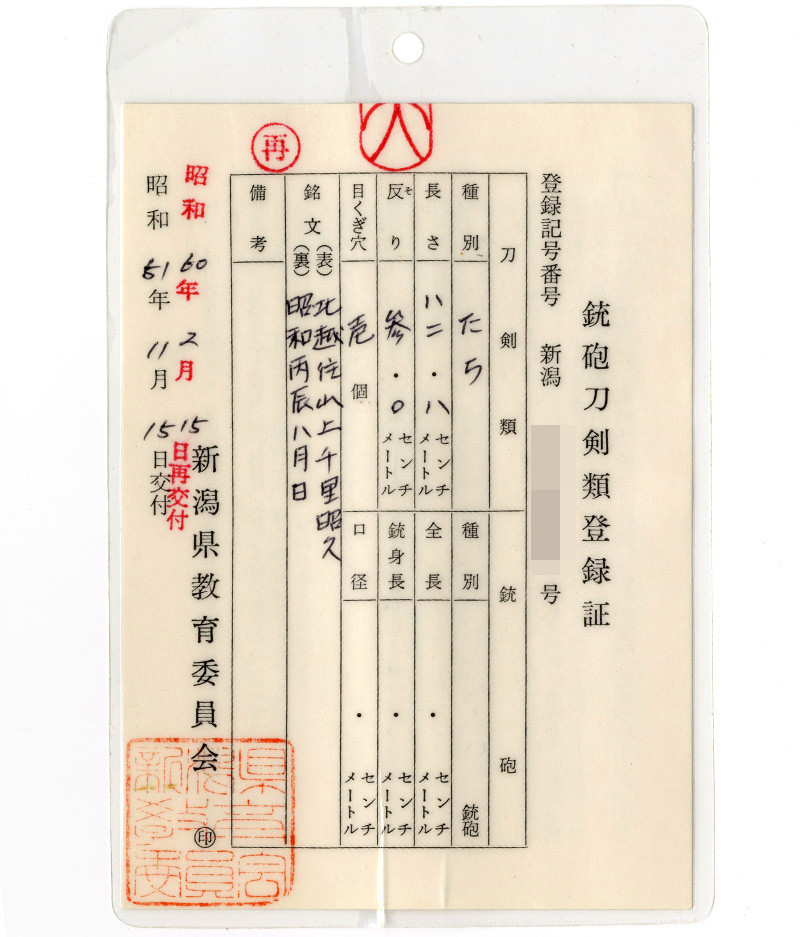 銃砲刀剣類登録証
登録記号番号 新潟 号
刀剣類
種別 たち
長さ 八二・八 センチメートル
反り そ 参・〇 センチメートル
目くぎ穴 壱個
銘文 (表) 北越住山上千里昭久
(裏) 昭和丙辰八月日
備考
銃砲
種別 銃砲
全長 ・ センチメートル
銃身長 ・ センチメートル
口径 ・ センチメートル
新潟県教育委員会 印
昭和60年2月15日再交付
昭和51年11月15日交付
再